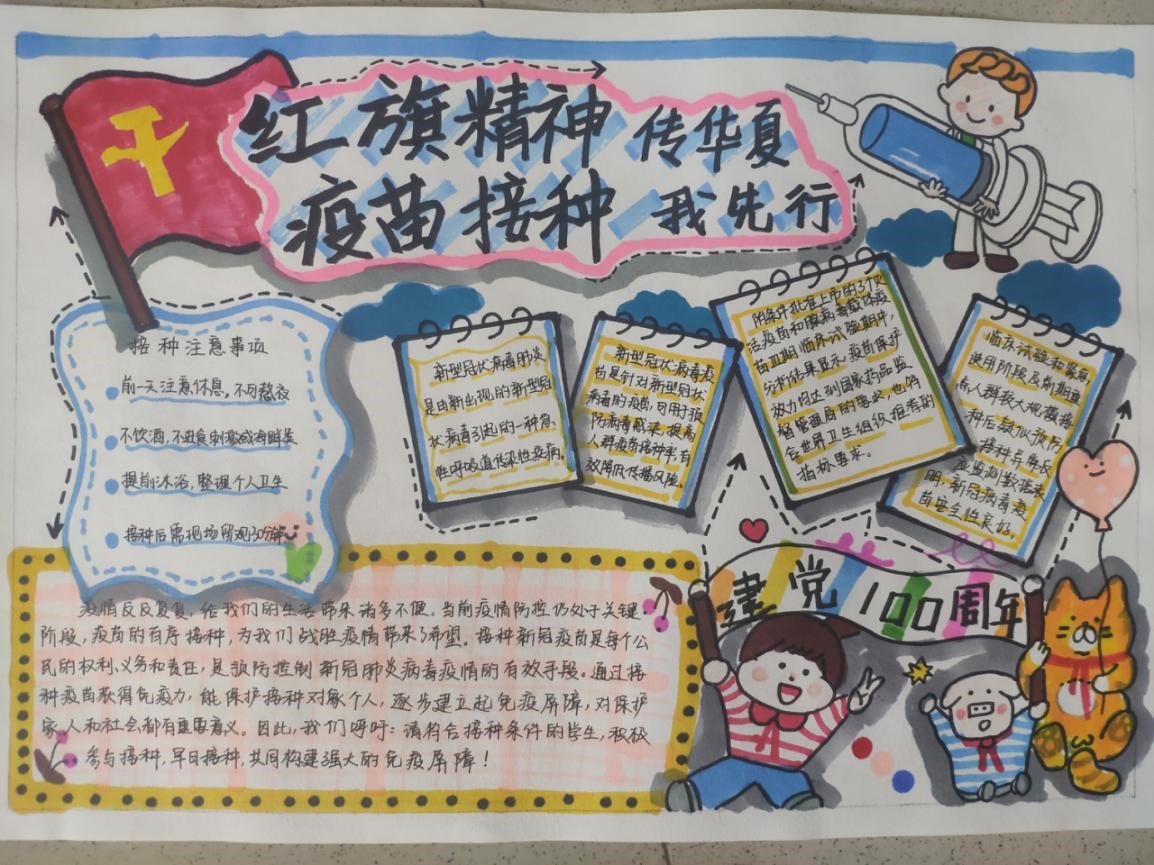 红旗精神 传华夏
疫苗接种 我先行
接种注意事项
前一天注意休息,不可熬夜
不饮酒,不进食刺激或海鲜类
提前沐浴,整理个人卫生
接种后需现场留观30分钟
新型冠状病毒肺炎
是由新出现的新型冠
状病毒引起的一种急
性呼吸道传染性疾病。
新型冠状病毒疫
苗是针对新型冠状
病毒的疫苗,可用于预
防病毒感染,提高
人群疫苗接种率有
效降低传播风险。
附条件批准上市的3个灭
活疫苗和腺病毒载体疫
苗Ⅲ期临床试验期中,
分析结果显示:疫苗保护
效力均达到国家药品监
督管理局的要求,也符
合世界卫生组织推荐的
指标要求。
临床试验和紧急
使用阶段及前期重
点人群较大规模接
种后疑似预防
接种异常反
应监测数据表
明,新冠病毒疫
苗安全性良好。
建党100周年
疫情反反复复,给我们的生活带来诸多不便。当前疫情防控仍处于关键
阶段,疫苗的有序接种,为我们战胜疫情带来了希望。接种新冠疫苗是每个公
民的权利、义务和责任,是预防控制新冠肺炎病毒疫情的有效手段。通过接
种疫苗获得免疫力,能保护接种对象个人,逐步建立起免疫屏障,对保护
家人和社会都有重要意义。因此,我们呼吁:请符合接种条件的学生,积极
参与接种,早日接种,共同构建强大的免疫屏障!